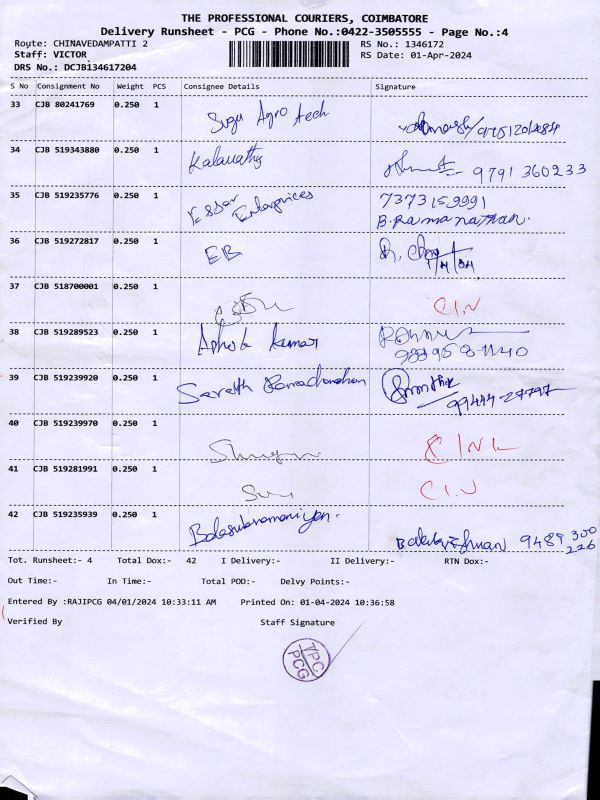 THE PROFESSIONAL COURIERS, COIMBATORE
Delivery Runsheet - PCG - Phone No.:0422-3505555 - Page No.:4
Route: CHINAVEDAMPATTI 2 RS No.: 1346172
Staff: VICTOR RS Date: 01-Apr-2024
DRS No.: DCJB134617204
S No Consignment No Weight PCS Consignee Details Signature
33 CJB 80241769 0.250 1 Sugu Agro tech
34 CJB 519343880 0.250 1 Kalavathy 9791 360233
35 CJB 519235776 0.250 1 Essar Enterprices 7373159991
B.Ramanathan.
36 CJB 519272817 0.250 1 EB
37 CJB 518700001 0.250 1 C/N
38 CJB 519289523 0.250 1 Ashok kumar
39 CJB 519239920 0.250 1 Sarath Ramachandran 99444-27797
40 CJB 519239970 0.250 1
41 CJB 519281991 0.250 1 C/N
42 CJB 519235939 0.250 1 Balasubramaniyan. 9489 300
226
Tot. Runsheet:- 4 Total Dox:- 42 I Delivery:- II Delivery:- RTN Dox:-
Out Time:- In Time:- Total POD:- Delvy Points:-
Entered By :RAJIPCG 04/01/2024 10:33:11 AM Printed On: 01-04-2024 10:36:58
Verified By Staff Signature
TPC
PCG